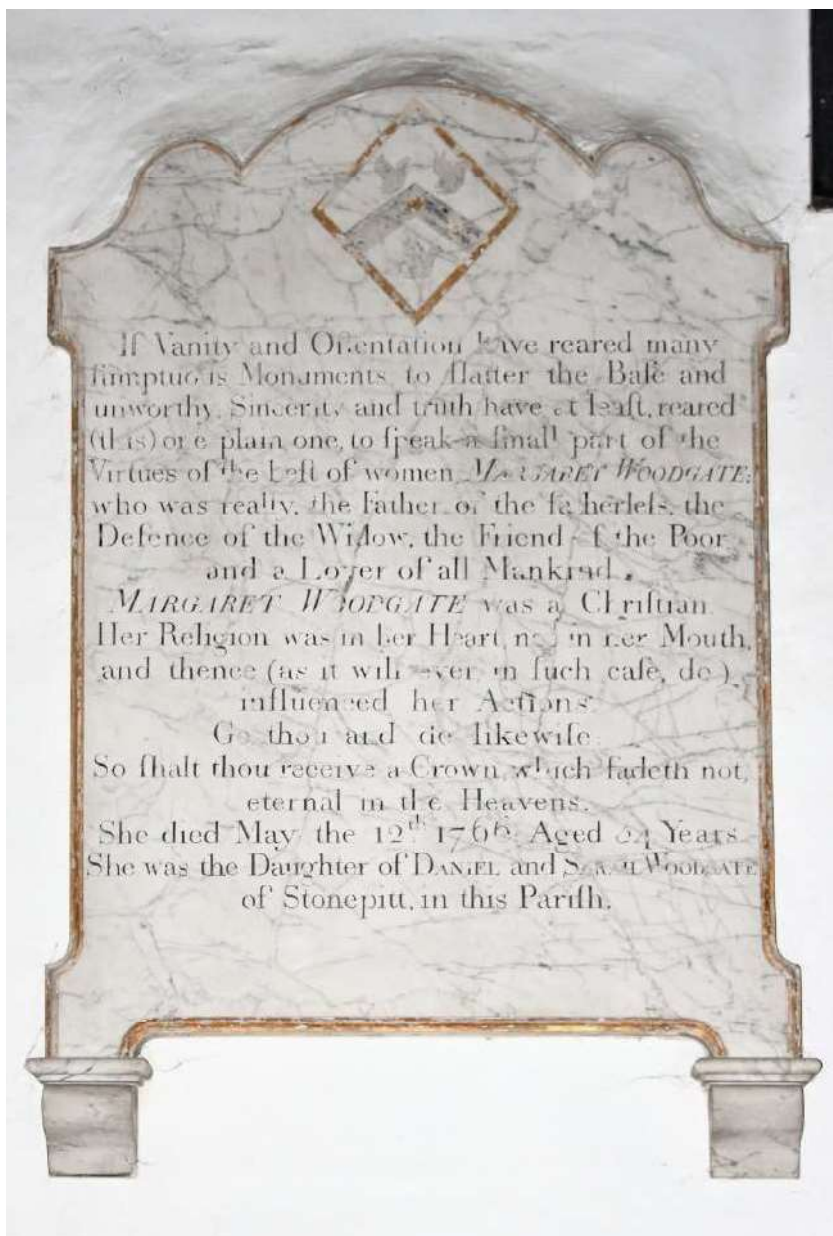 If Vanity and Oſtentation have reared many
ſumptuous Monuments, to flatter the Baſe and
unworthy, Sincerity and truth have at leaſt, reared
(this) one plain one, to ſpeak a ſmall part of the
Virtues of the beſt of women MARGARET WOODGATE:
who was really, the Father of the fatherleſs, the
Defence of the Widow, the Friend of the Poor
and a Lover of all Mankind.
MARGARET WOODGATE was a Chriſtian.
Her Religion was in her Heart, not in her Mouth,
and thence (as it will ever, in ſuch caſe, do)
influenced her Actions.
Go thou and do likewiſe.
So ſhalt thou receive a Crown, which fadeth not,
eternal in the Heavens.
She died May the 12th Aged Years
She was the Daughter of DANIEL and SARAH WOODGATE
of Stonepitt, in this Pariſh.